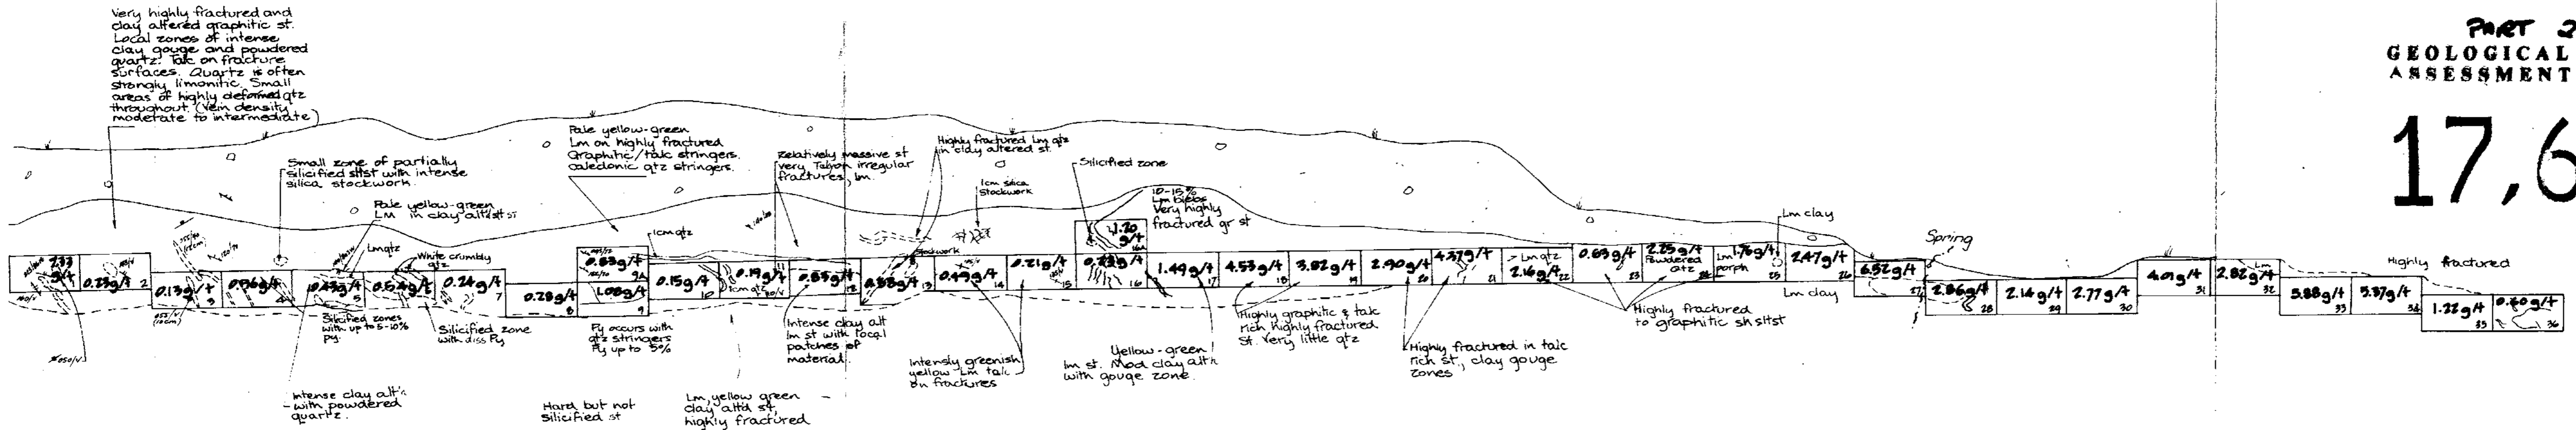 Very highly fractured and
clay altered graphitic st.
Local zones of intense
clay gouge and powdered
quartz. Talc on fracture
surfaces. Quartz is often
strongly limonitic. Small
areas of highly deformed qtz
throughout. (Vein density
moderate to intermediate)
Small zone of partially
silicified sltst with intense
silica stockwork.
Pale yellow-green
Lm in clay alt'd st
Lm qtz
White crumbly
qtz
Pale yellow-green
Lm on highly fractured
Graphitic/talc stringers.
caledonic qtz stringers.
1cm qtz
Relatively massive st
very irregular
fractures, lm.
Highly fractured Lm qtz
in clay altered st.
1cm silica
Stockwork
Stockwork
Silicified zone
10-15%
Lm blebs
Very highly
fractured gr st
Lm clay
Spring
Highly fractured
PART 2
GEOLOGICAL
ASSESSMENT
17,6
g/t
0.23g/t 2
0.13g/t 3
0.96g/t 4
0.43g/t 5
0.54g/t 6
0.24g/t 7
0.28g/t 8
0.83g/t 9A
1.08g/t 9
0.15g/t 10
1cm qtz
0.19g/t 11
0.87g/t 12
0.88g/t 13
0.49g/t 14
0.21g/t 15
1.20
g/t
16A
g/t 16
1.49g/t 17
4.53g/t 18
3.82g/t 19
2.90g/t 20
4.37g/t 21
Lm qtz
2.16g/t 22
0.63g/t 23
2.25g/t
Powdered
qtz 24
1.76g/t
Lm
porph 25
2.47g/t 26
6.52g/t 27
2.86g/t 28
2.14g/t 29
2.77g/t 30
4.01g/t 31
2.82g/t 32
Lm
5.88g/t 33
5.37g/t 34
1.22g/t 35
0.40g/t 36
Lm clay
050/V
055/V
(10cm)
Silicified zones
with up to 5-10%
py.
Silicified zone
with diss Py
Py occurs with
qtz stringers
Py up to 5%
Intense clay alt
lm st with local
patches of
material.
Intensly greenish
yellow Lm talc
on fractures
Yellow-green
lm st. Mod clay alt'n
with gouge zone.
Highly graphitic & talc
rich highly fractured
st. Very little qtz
Highly fractured in talc
rich st., clay gouge
zones
Highly fractured
to graphitic sh sltst
Intense clay alt'n
with powdered
quartz.
Hard but not
silicified st
Lm, yellow green
clay alt'd st,
highly fractured